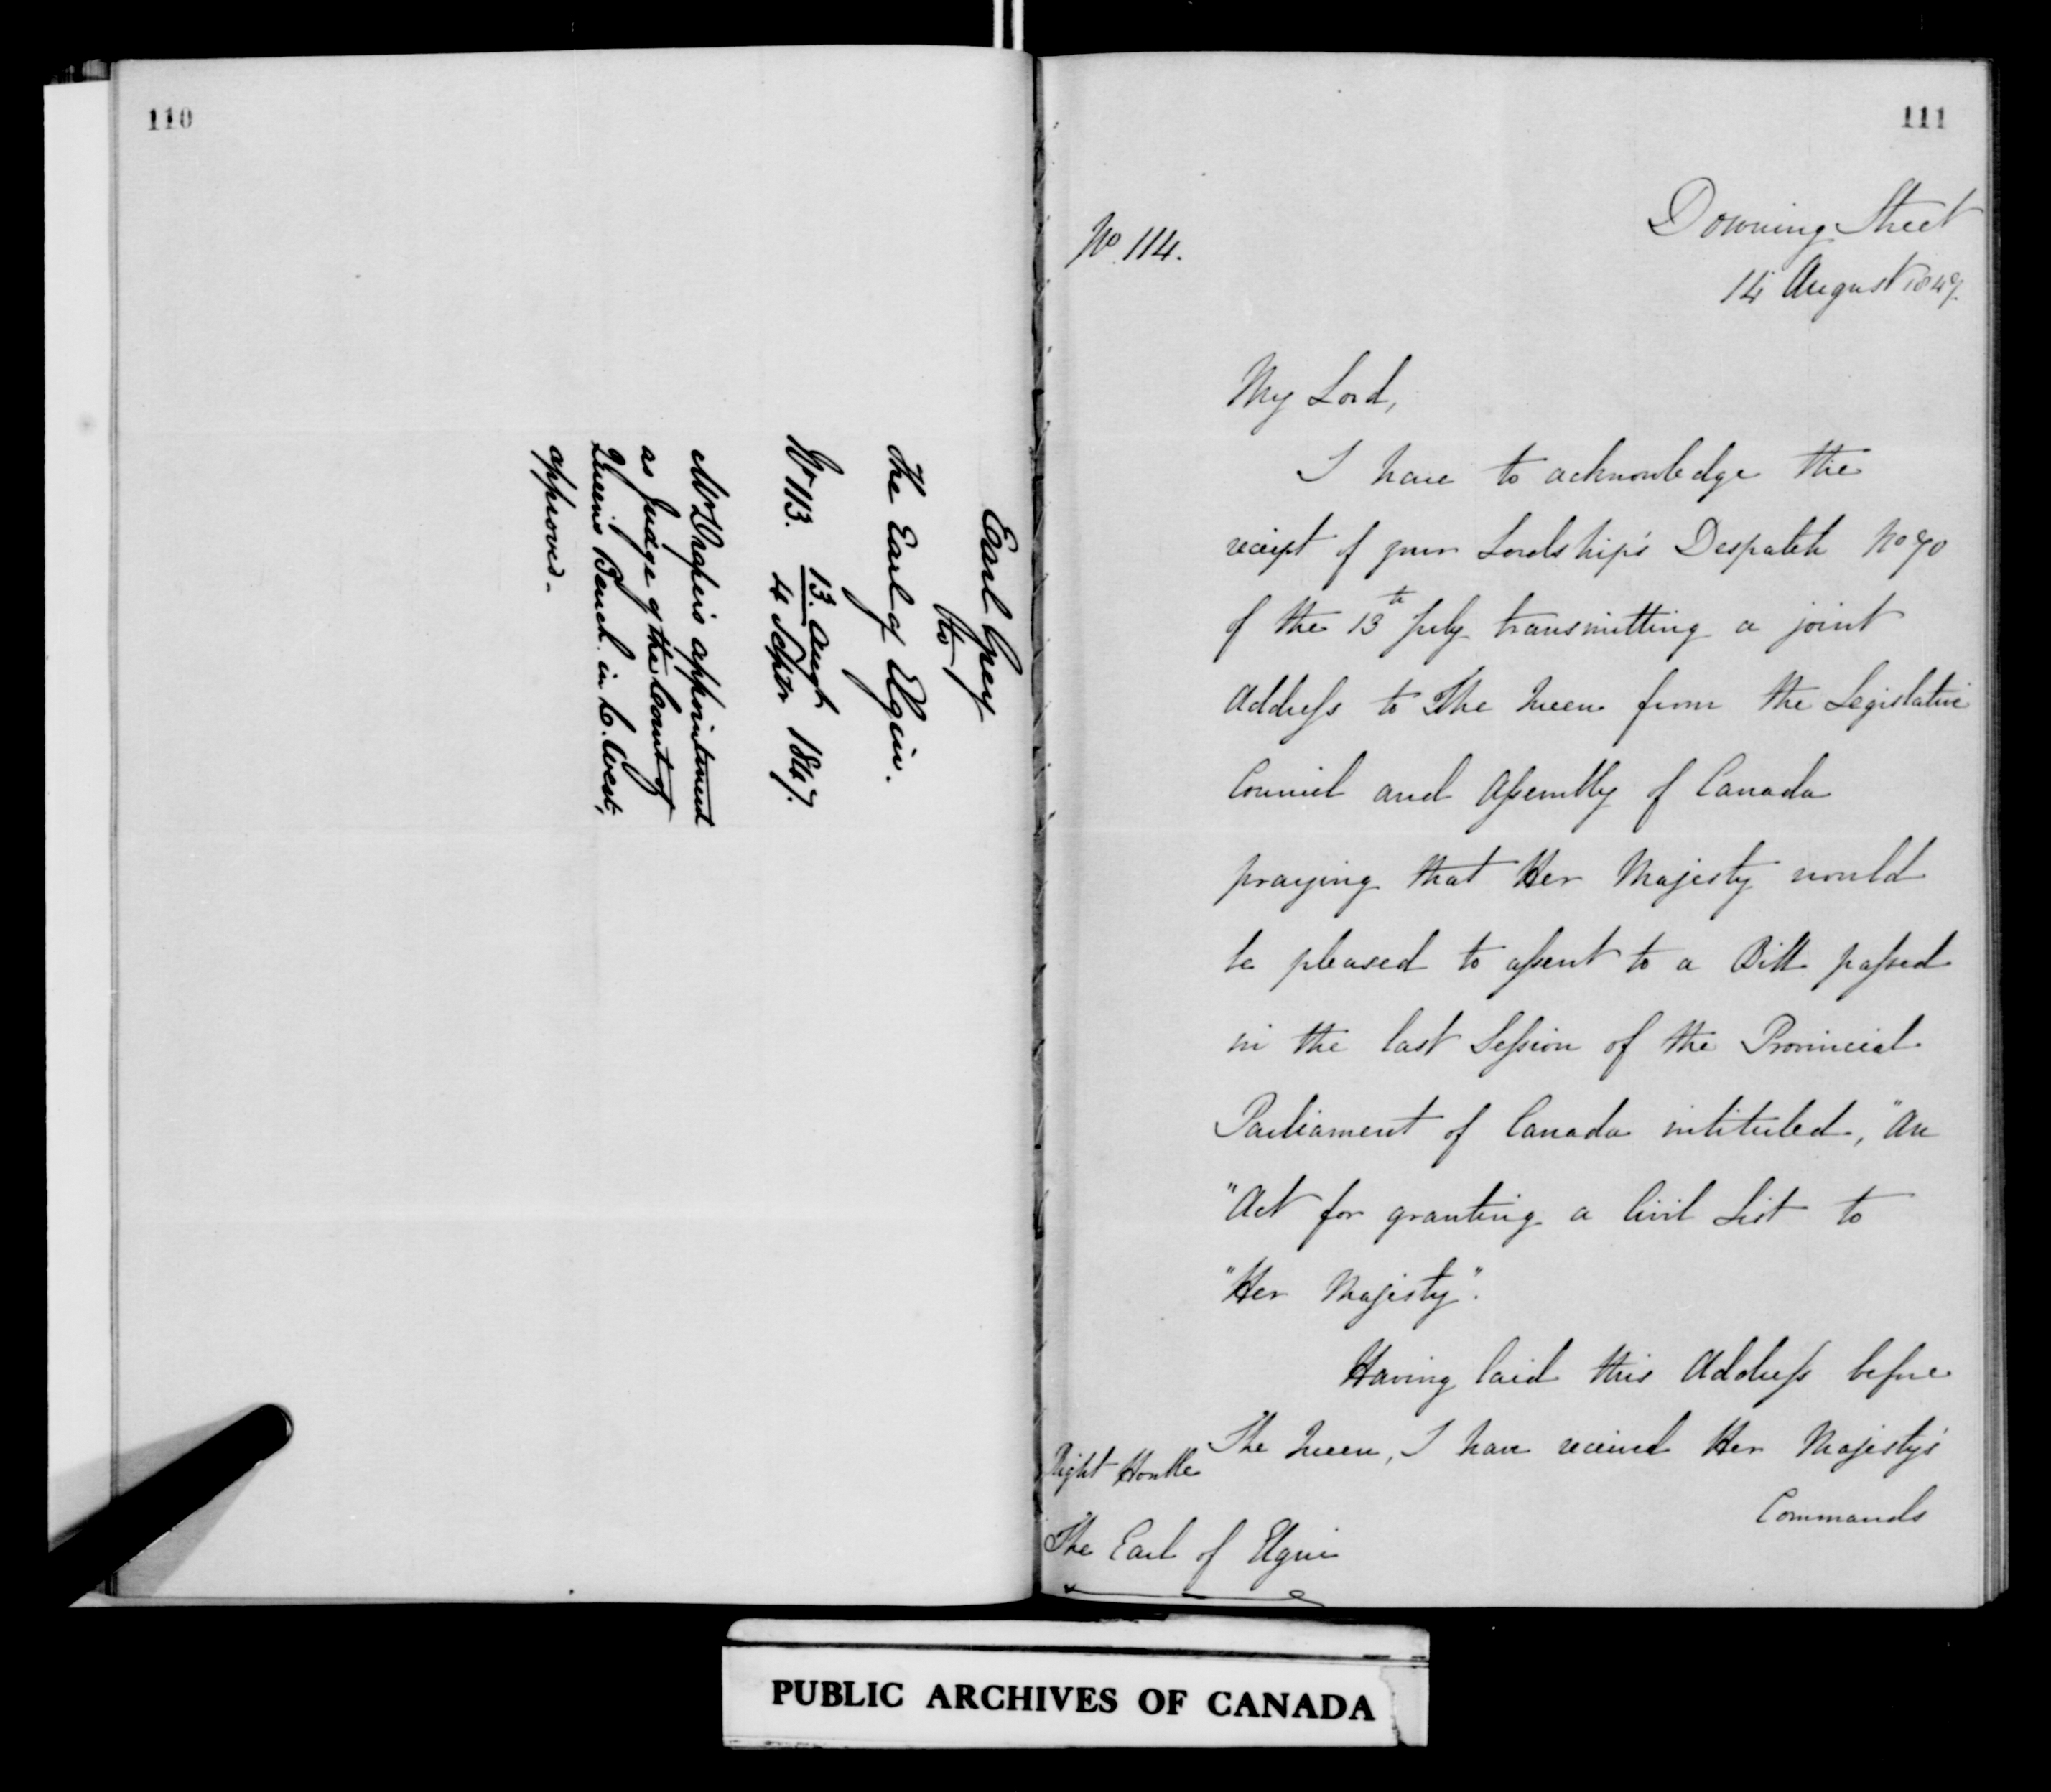 110
Earl Grey
to
The Earl of Elgin.
No 113. 13. Augt
4 Septr 1847.
Mr Draper's appointment
as Judge of the Court of
Queen's Bench in C. West,
approved -
111
No. 114.
Downing Street
14 August 1847.
My Lord,
I have to acknowledge the
receipt of your Lordship's Despatch No 70
of the 13th July transmitting a joint
Address to The Queen from the Legislative
Council and Assembly of Canada
praying that Her Majesty would
be pleased to assent to a Bill passed
in the last Session of the Provincial
Parliament of Canada intituled, "An
"Act for granting a Civil List to
"Her Majesty".
Having laid this Address before
The Queen, I have received Her Majesty's
Commands
Right Honble
The Earl of Elgin
PUBLIC ARCHIVES OF CANADA